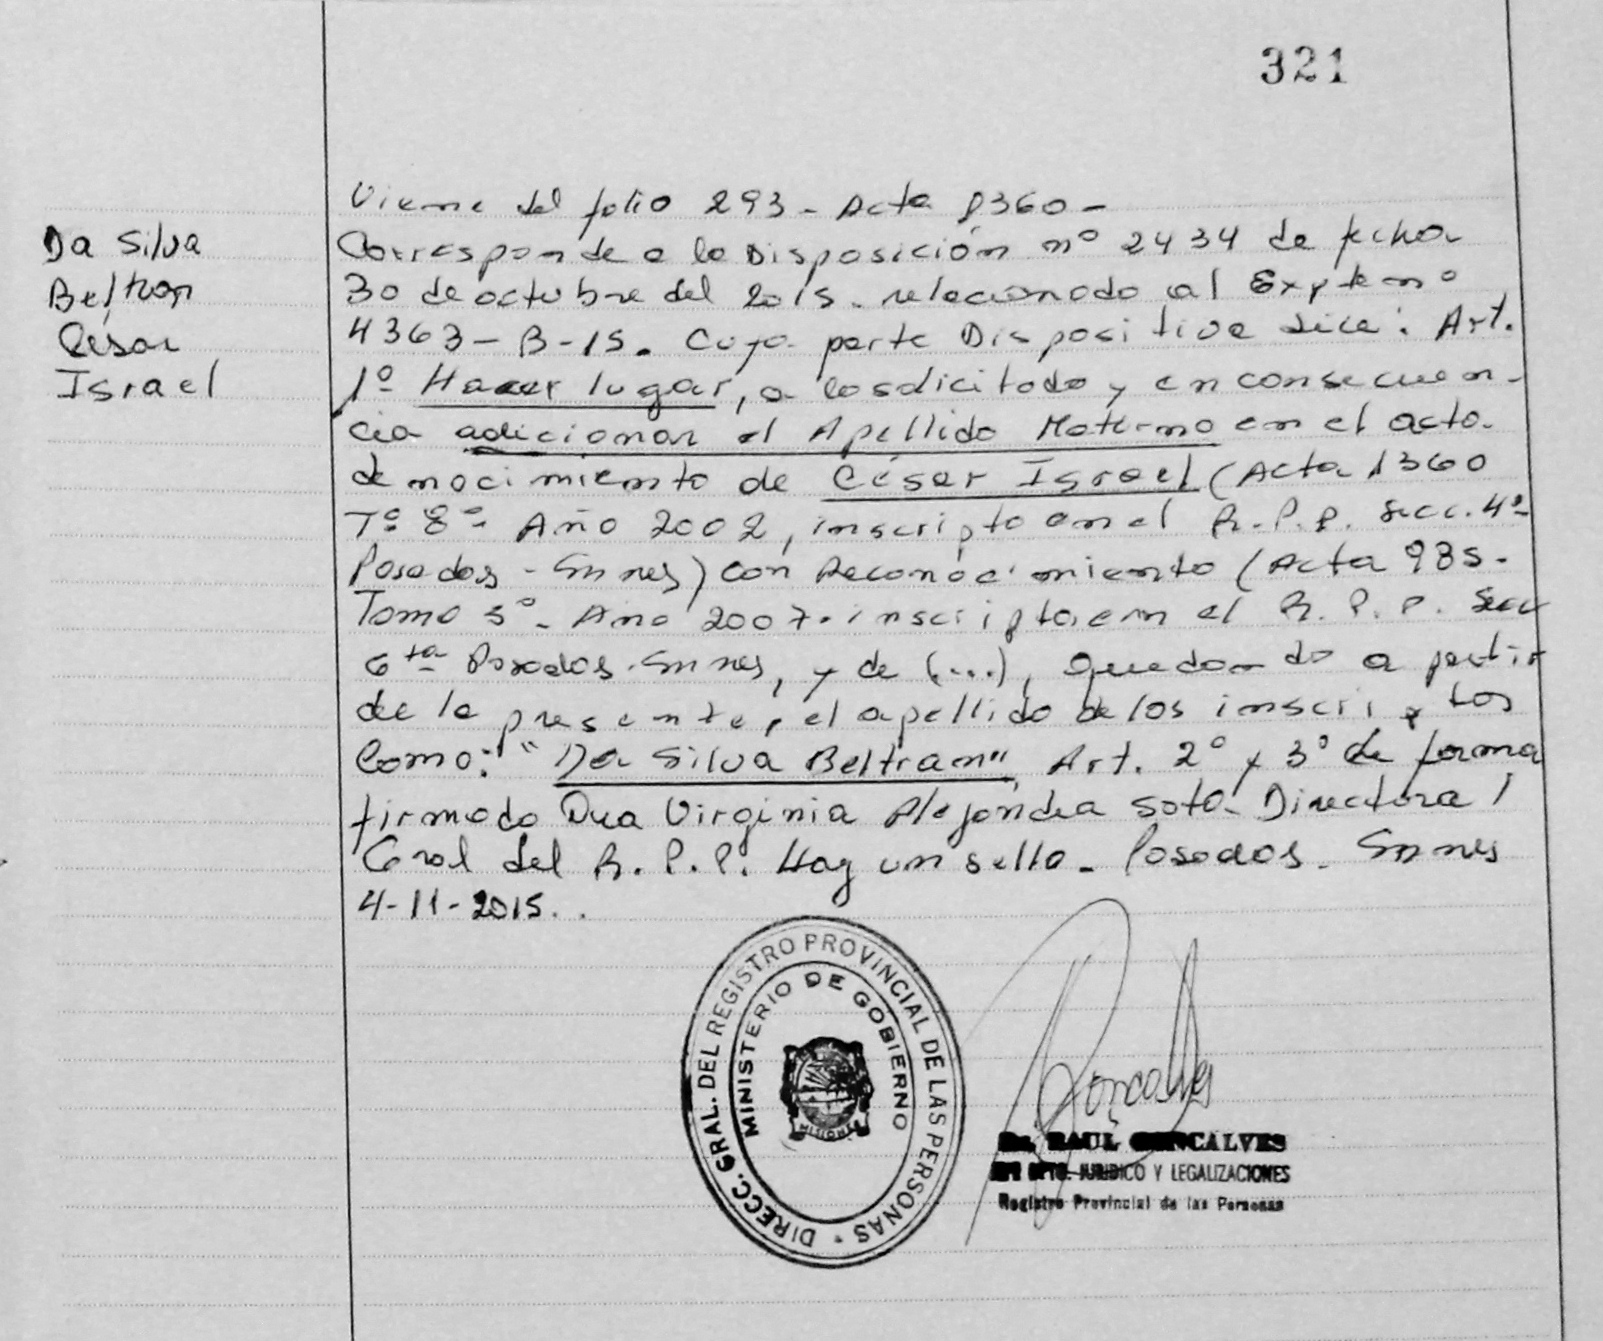 321
Viene del folio 293 - Acta 1360 -
Da Silva
Beltran
César
Israel
Corresponde a la Disposición nº 2434 de fecha
30 de octubre del 2015. relacionado al Expte nº
4363-B-15. Cuya parte Dispositiva dice: Art.
1º Hacer lugar, a lo solicitado y en consecuen-
cia adicionar el Apellido Materno en el acta
de nacimiento de César Israel (Acta 1360
Tº 8º- Año 2002, inscripto en el R.P.P. Secc. 4ª
Posadas - Mnes) con Reconocimiento (Acta 985-
Tomo 5º- Año 2007. inscripta en el R.P.P. Secc
6ta Posadas. Mnes, y de (...), quedando a partir
de la presente, el apellido de los inscriptos
Como: "Da Silva Beltran" Art. 2º y 3º de forma
firmado Dra Virginia Alejandra Soto. Directora
Gral del R.P.P. Hay un sello - Posadas. Mnes
4-11-2015..
DIRECC. GRAL. DEL REGISTRO PROVINCIAL DE LAS PERSONAS
MINISTERIO DE GOBIERNO
MISIONES
Goncalves
Dr. RAUL GONCALVES
DPTO. JURIDICO Y LEGALIZACIONES
Registro Provincial de las Personas